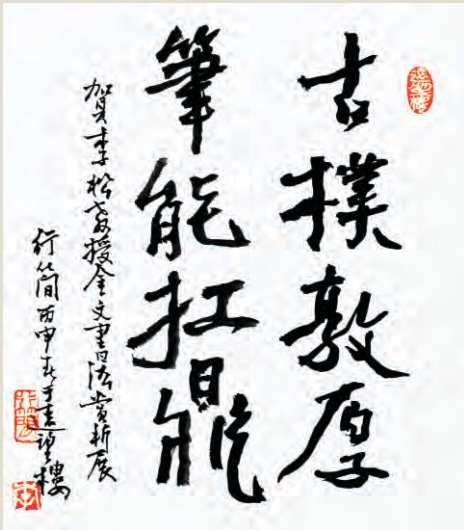 古樸敦厚
筆能扛鼎
賀李松教授金文書法賞析展
行簡丙申春于遠望樓